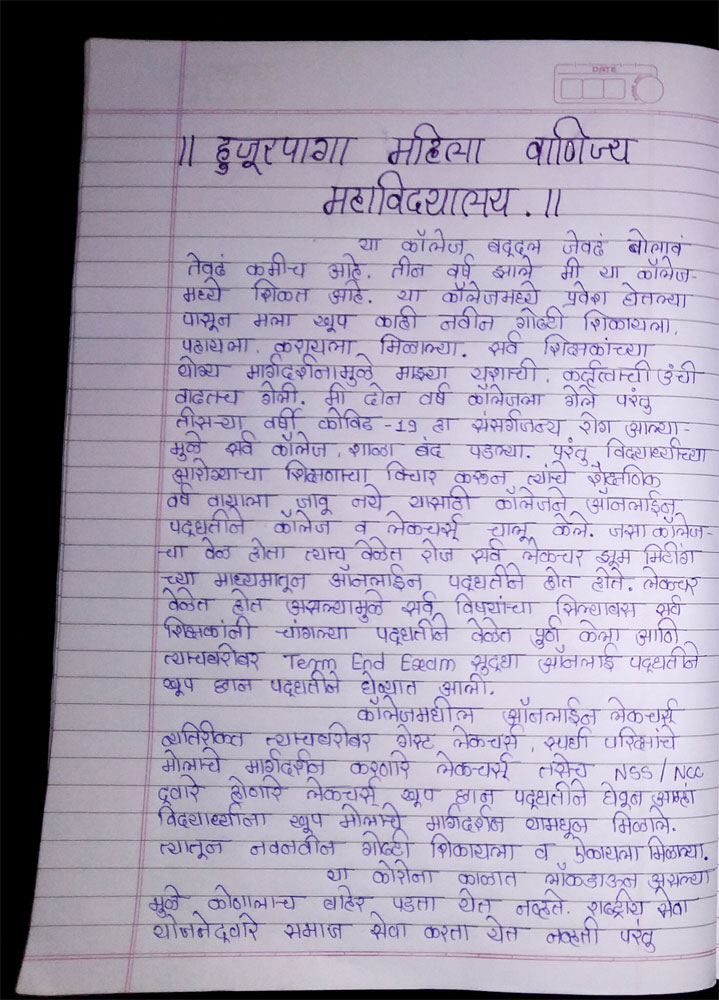 DATE
।। हुजूरपागा महिला वाणिज्य
महाविदयालय . ।।
या कॉलेज बद्दल जेवढं बोलावं
तेवूढं कमीच आहे. तीन वर्ष झाले मी या कॉलेज-
मध्ये शिकत आहे. या कॉलेजमध्ये प्रवेश घेतल्या
पासून मला खूप काही नवीन गोष्टी शिकायला,
पहायला, करायला मिळाल्या. सर्व शिक्षकांच्या
योग्य मार्गदर्शनामुळे माझ्या यशाची, कर्तृत्वाची उंची
वाढतच गेली. मी दोन वर्ष कॉलेजला गेले परंतु
तीसऱ्या वर्षी कोविड -19 हा संसर्गजन्य रोग आल्या-
मुळे सर्व कॉलेज, शाळा बंद पडल्या. परंतु विद्यार्थ्यांच्या
आरोग्याचा शिक्षणाचा विचार करून त्यांचे शैक्षणिक
वर्ष वायाला जावू नये यासाठी कॉलेजने ऑनलाईन
पद्धतीने कॉलेज व लेकचर्स् चालू केले. जसा कॉलेज-
चा वेळ होता त्याच वेळेत रोज सर्व लेकचर झूम मिटींग
च्या माध्यमातून ऑनलाईन पद्धतीने होत होते. लेकचर
वेळेत होत असल्यामुळे सर्व विषयांचा सिल्याबस सर्व
शिक्षकांनी चांगल्या पद्धतीने वेळेत पुर्ण केला आणि
त्याचबरोबर Term End Exam सुद्धा ऑनलाई पद्धतीने
खूप छान पद्धतीने घेण्यात आली.
कॉलेजमधील ऑनलाईन लेकचर्स्
व्यतिरीक्त त्याचबरोबर गेस्ट लेकचर्स्, स्पर्धा परिक्षांचे
मोलाचे मार्गदर्शन करणारे लेकचर्स् तसेच NSS/NCC
द्वारे होणारे लेकचर्स् खूप छान पद्धतीने घेवून आम्हा
विद्यार्थ्यांना खूप मोलाचे मार्गदर्शन यामधून मिळाले.
त्यातून नवनवीन गोष्टी शिकायला व ऐकायला मिळाल्या.
या कोरोना काळात लॉकडाऊन असल्या
मुळे कोणालाच बाहेर पडता येत नव्हते. राष्ट्रीय सेवा
योजनेद्वारे समाज सेवा करता येत नव्हती परंतु